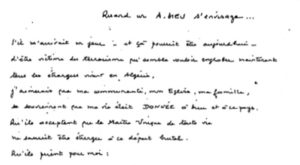 Quand un A-DIEU s'envisage...
S'il m'arrivait un jour - et ça pourrait être aujourd'hui -
d'être victime du terrorisme qui semble vouloir englober maintenant
tous les étrangers vivant en Algérie,
j'aimerais que ma communauté, mon Eglise, ma famille,
se souviennent que ma vie était DONNÉE à Dieu et à ce pays.
Qu'ils acceptent que le Maître Unique de toute vie
ne saurait être étranger à ce départ brutal.
Qu'ils prient pour moi :